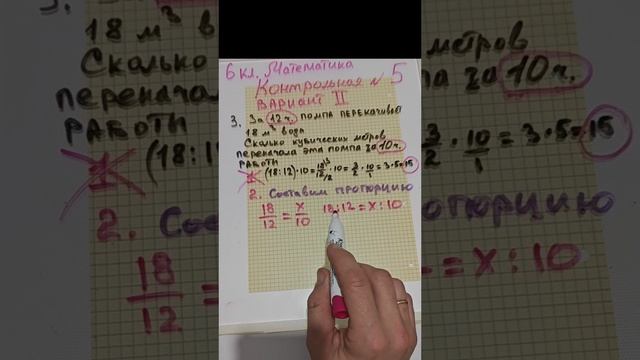 6 кл. Математика
Контрольная № 5
Вариант II
3. За 12 ч. помпа перекачивает
18 м³ воды
Сколько кубических метров
перекачала эта помпа за 10 ч.
работы
(18:12)·10 = 18/12 · 10 = 3/2 · 10/1 = 3·5 = 15
2. Составим пропорцию
18/12 = x/10 18:12 = x:10